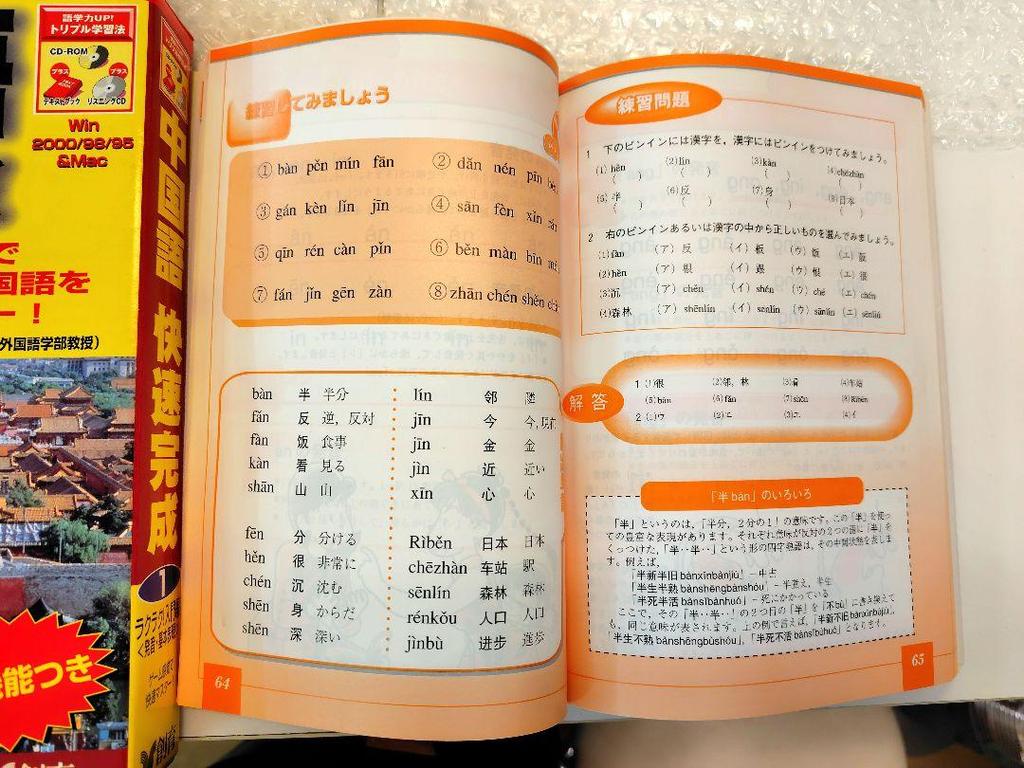 語学力UP!
トリプル学習法
CD-ROM
プラス
プラス
テキストブック
リスニングCD
Win
2000/98/95
&Mac
で
国語を
ー!
外国語学部教授)
能つき
創育
中国語 快速完成
1
練習してみましょう
① bàn pěn mín fān
② dǎn nén pīn
③ gán kèn lǐn jīn
④ sān fèn xìn
⑤ qīn rén càn pǐn
⑥ běn màn bīn
⑦ fán jǐn gēn zàn
⑧ zhān chén shěn
bàn 半 半分
fǎn 反 逆,反対
fàn 饭 食事
kàn 看 見る
shān 山 山
fēn 分 分ける
hěn 很 非常に
chén 沉 沈む
shēn 身 からだ
shēn 深 深い
lín 邻 隣
jīn 今 今,現在
jīn 金 金
jìn 近 近い
xīn 心 心
Rìběn 日本 日本
chēzhàn 车站 駅
sēnlín 森林 森林
rénkǒu 人口 人口
jìnbù 进步 進歩
64
練習問題
1 下のピンインには漢字を,漢字にはピンインをつけてみましょう。
(1)hěn (2)lín (3)kàn (4)chēzhàn
( ) ( ) ( ) ( )
(5)半 (6)反 (7)身 (8)日本
( ) ( ) ( ) ( )
2 右のピンインあるいは漢字の中から正しいものを選んでみましょう。
(1)fàn (ア)反 (イ)板 (ウ)饭 (エ)
(2)hěn (ア)根 (イ) (ウ)恨 (エ)很
(3)沉 (ア)chēn (イ)shén (ウ)ché (エ)chén
(4)森林 (ア)shēnlín (イ)sēnlín (ウ)sānlín (エ)
解答
1 (1)很 (2)邻,林 (3)看 (4)车站
(5)bàn (6)fǎn (7)shēn (8)Rìběn
2 (1)ウ (2)エ (3)エ (4)イ
「半 bàn」のいろいろ
「半」というのは,「半分,2分の1」の意味です。この「半」を使っ
ての豊富な表現があります。それぞれ意味が反対の2つの語に「半」を
くっつけた,「半‥半‥」という形の四字熟語は,その中間状態を表しま
す。例えば,
「半新半旧 bànxīnbànjiù」−中古
「半生半熟 bànshēngbànshóu」−半煮え,半生
「半死半活 bànsǐbànhuó」−死にかかっている
ここで,その「半‥半‥」の2つ目の「半」を「不bù」に書き換えて
も,同じ意味が表されます。上の例で言えば,「半新不旧 bànxīnbújiù」,
「半生不熟 bànshēngbùshóu」,「半死不活 bànsǐbùhuó」となります。
65